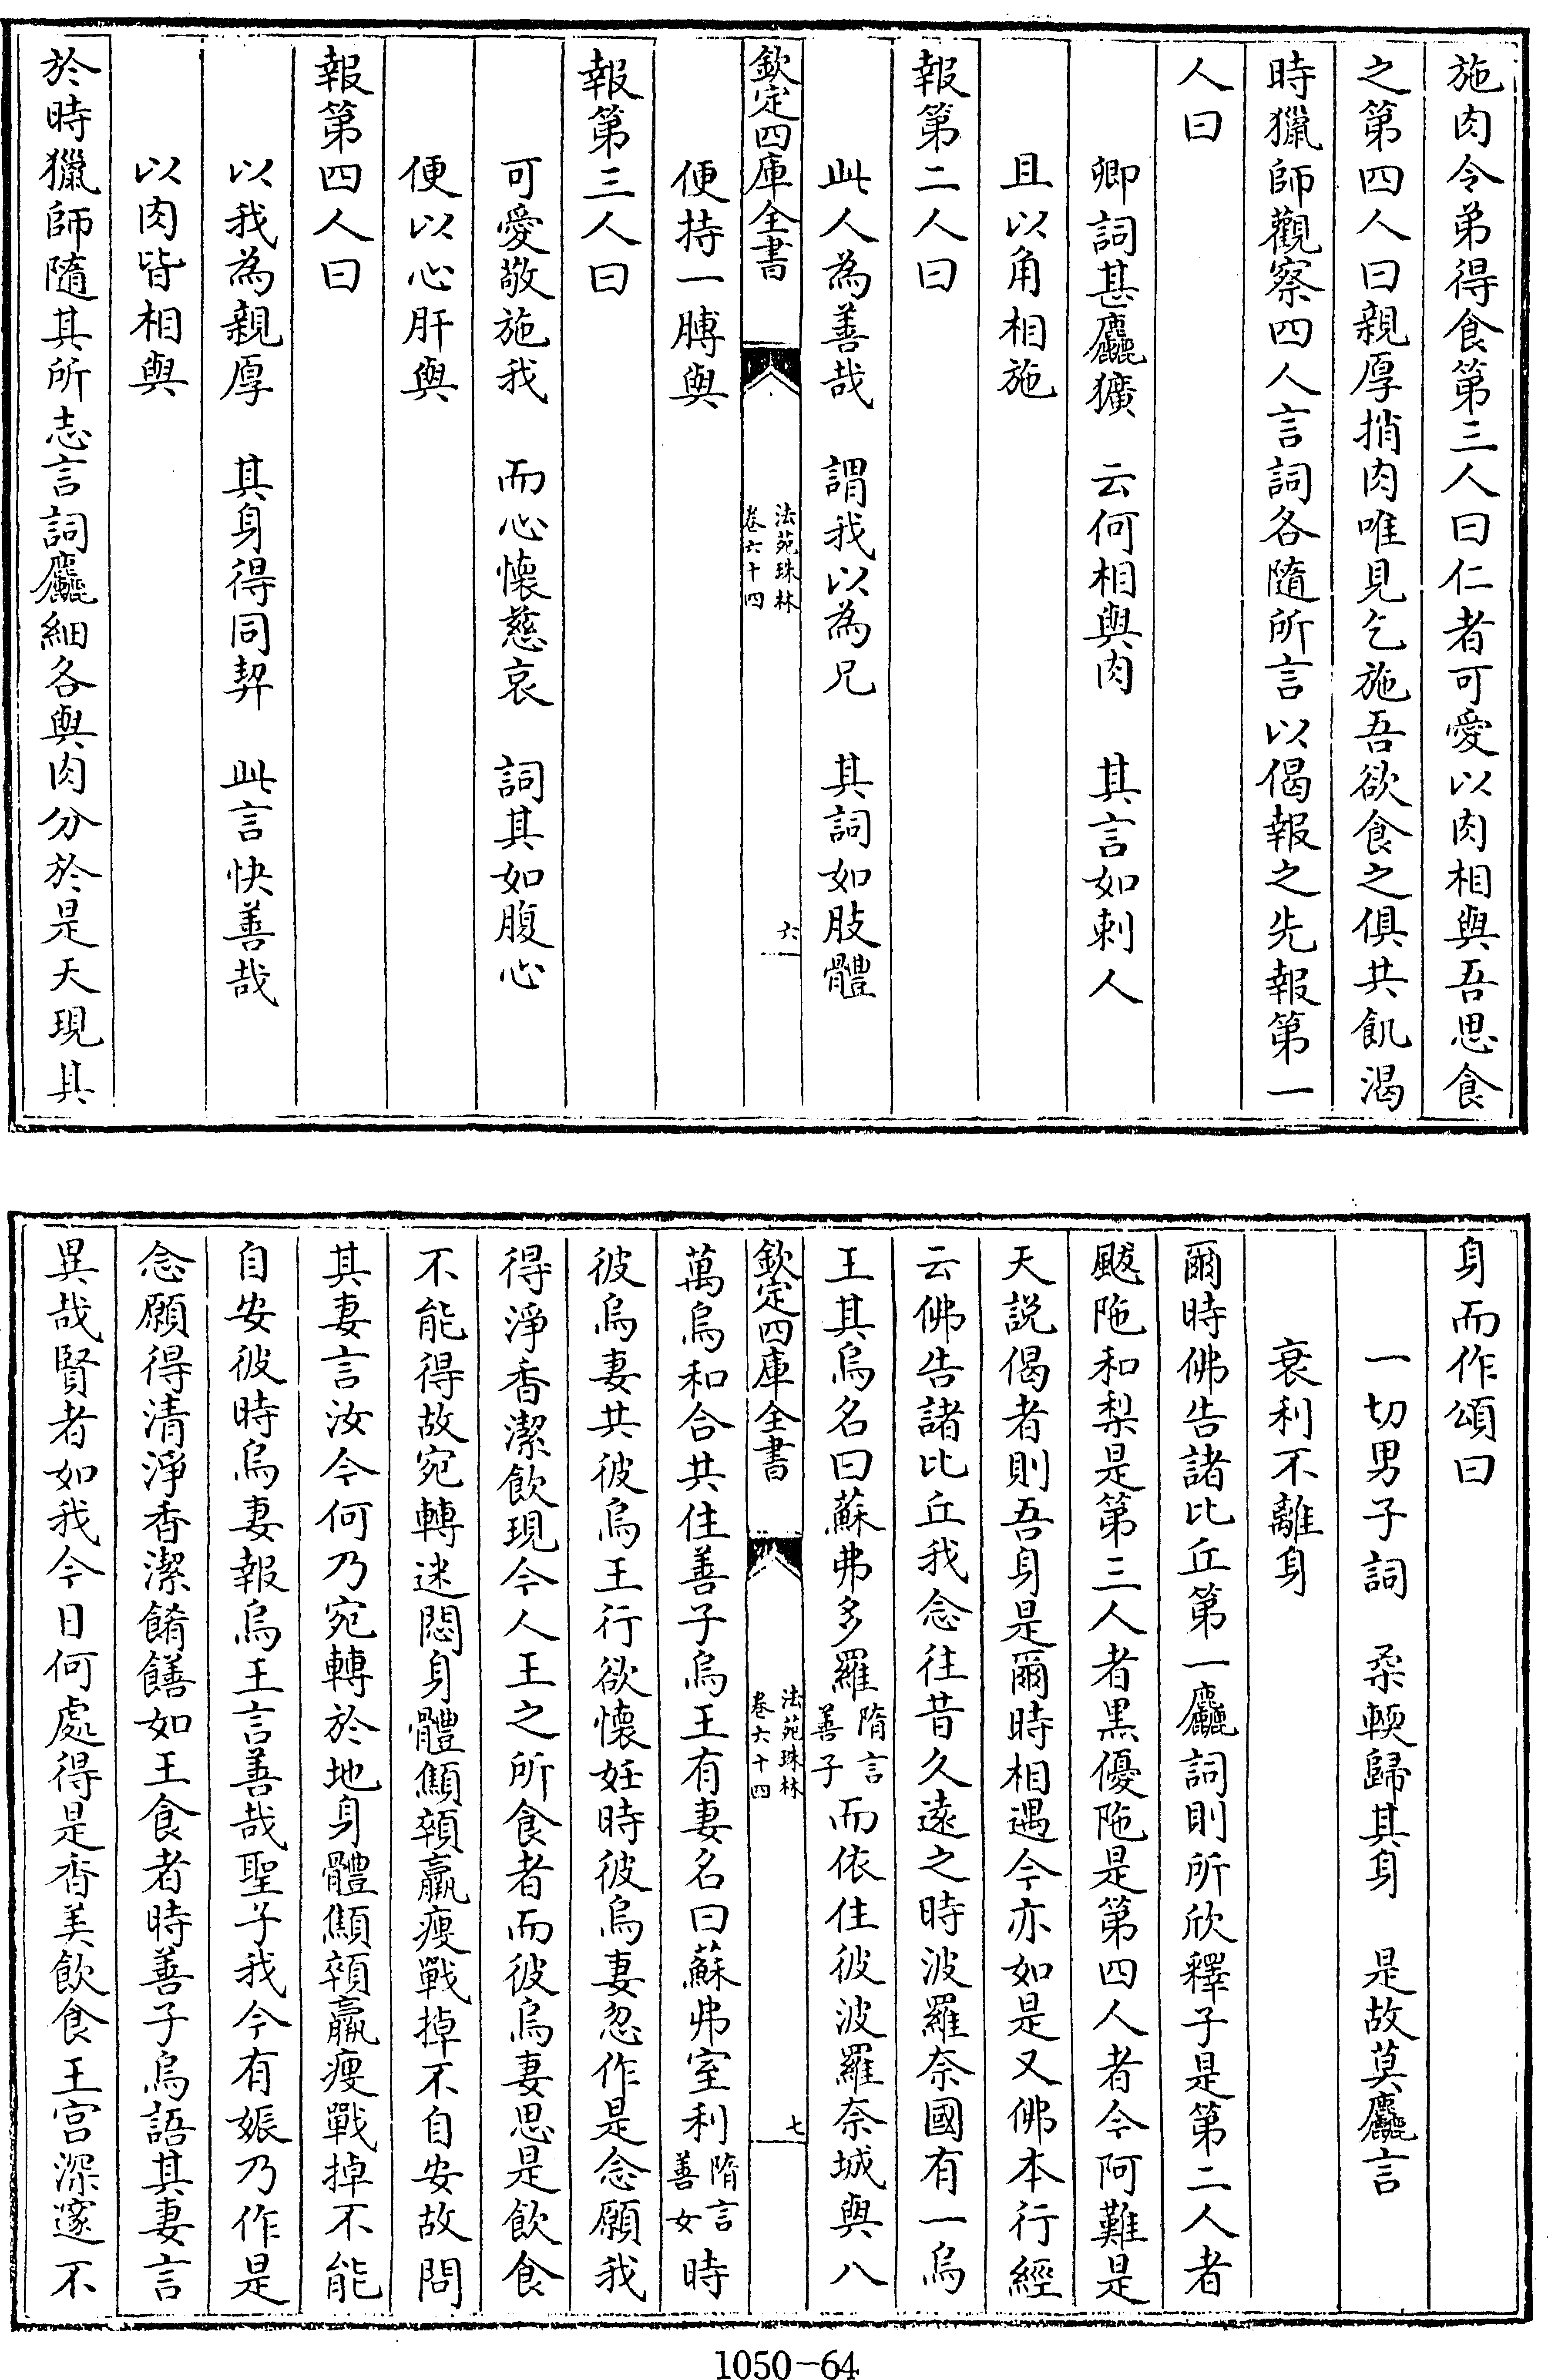 施肉令弟得食第三人曰仁者可愛以肉相與吾思食
之第四人曰親厚捎肉唯見乞施吾欲食之俱共飢渴
時獵師觀察四人言詞各隨所言以偈報之先報第一
人曰
卿詞甚麤獷　云何相與肉　其言如刺人
且以角相施
報第二人曰
此人為善哉　謂我以為兄　其詞如肢體
欽定四庫全書
法苑珠林
卷六十四
六
便持一膊與
報第三人曰
可愛敬施我　而心懷慈哀　詞其如腹心
便以心肝與
報第四人曰
以我為親厚　其身得同契　此言快善哉
以肉皆相與
於時獵師隨其所志言詞麤細各與肉分於是天現其
身而作頌曰
一切男子詞　柔軟歸其身　是故莫麤言
衰利不離身
爾時佛告諸比丘第一麤詞則所欣釋子是第二人者
颰陁和梨是第三人者黑優陁是第四人者今阿難是
天説偈者則吾身是爾時相遇今亦如是又佛本行經
云佛告諸比丘我念往昔久遠之時波羅奈國有一烏
王其烏名曰蘇弗多羅隋言善子而依住彼波羅奈城與八
欽定四庫全書
法苑珠林
卷六十四
七
萬烏和合共住善子烏王有妻名曰蘇弗室利隋言善女時
彼烏妻共彼烏王行欲懷妊時彼烏妻忽作是念願我
得淨香潔飲現今人王之所食者而彼烏妻思是飲食
不能得故宛轉迷悶身體顦顇羸瘦戰掉不自安故問
其妻言汝今何乃宛轉於地身體顦顇羸瘦戰掉不能
自安彼時烏妻報烏王言善哉聖子我今有娠乃作是
念願得清淨香潔餚饍如王食者時善子烏語其妻言
異哉賢者如我今日何處得是香美飲食王宮深邃不
1050-64